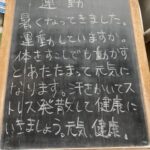 運動
暑くなってきました。
運動していますか。
体をすこしでも動かす
とあたたまって元気に
なります。汗をかいてス
トレス発散して健康に
いきましょう。元気、健康。